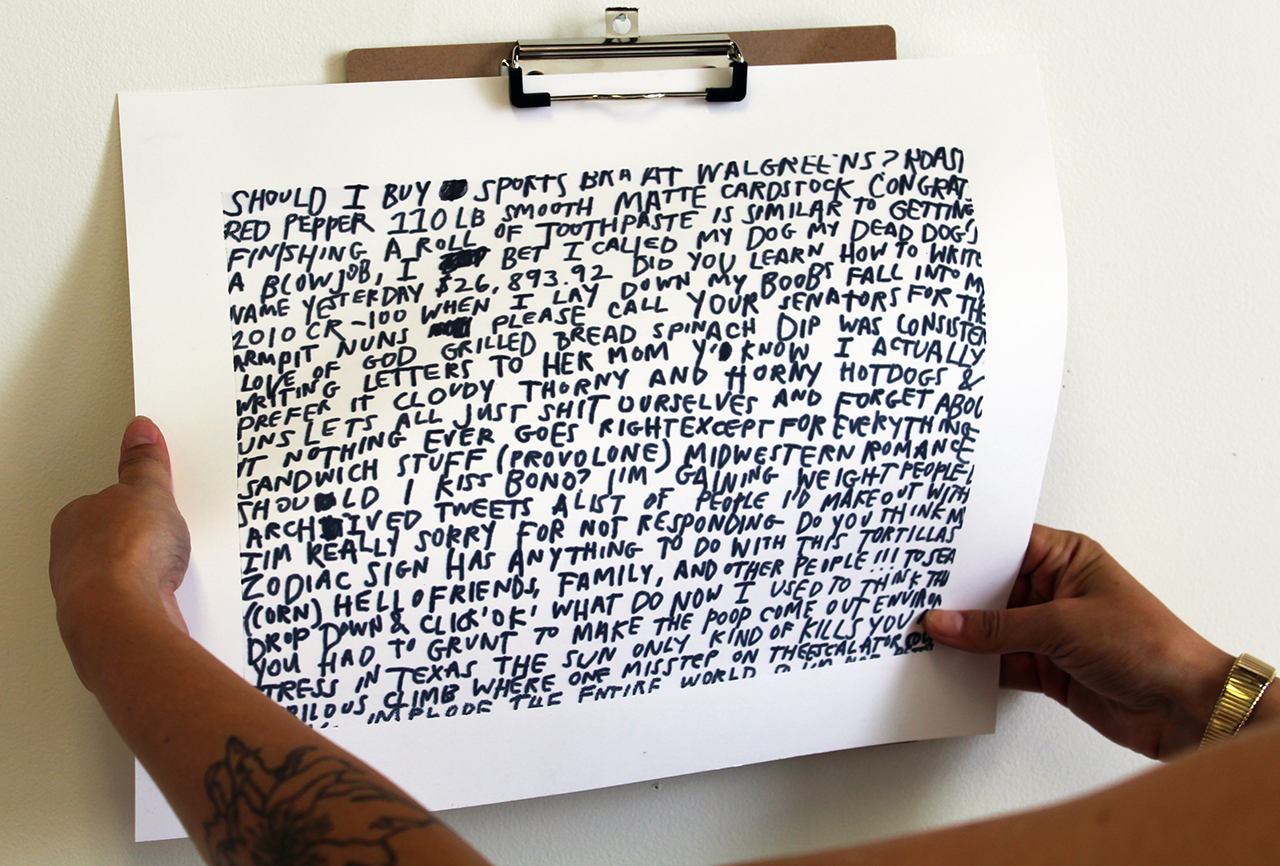 SHOULD I BUY SPORTS BRA AT WALGREENS? ROAST
RED PEPPER 110 LB SMOOTH MATTE CARDSTOCK CONGRAT
FINISHING A ROLL OF TOOTHPASTE IS SIMILAR TO GETTING
A BLOWJOB, I BET I CALLED MY DOG MY DEAD DOG'S
NAME YESTERDAY $26,893.92 DID YOU LEARN HOW TO WRITE
2010 CR-100 WHEN I LAY DOWN MY BOOBS FALL INTO M
ARMPIT NUNS PLEASE CALL YOUR SENATORS FOR THE
LOVE OF GOD GRILLED BREAD SPINACH DIP WAS CONSISTEN
WRITING LETTERS TO HER MOM Y'O KNOW I ACTUALLY
PREFER IT CLOUDY THORNY AND HORNY HOTDOGS &
UNS LETS ALL JUST SHIT OURSELVES AND FORGET ABOU
IT NOTHING EVER GOES RIGHT EXCEPT FOR EVERYTHING
SANDWICH STUFF (PROVOLONE) MIDWESTERN ROMANCE
SHOULD I KISS BONO? I'M GAINING WEIGHT PEOPLE!
ARCHIVED TWEETS A LIST OF PEOPLE I'D MAKE OUT WITH
I'IM REALLY SORRY FOR NOT RESPONDING DO YOU THINK M
ZODIAC SIGN HAS ANYTHING TO DO WITH THIS TORTILLAS
(CORN) HELLO FRIENDS, FAMILY, AND OTHER PEOPLE!!! TO SEA
DROP DOWN & CLICK 'OK' WHAT DO NOW I USED TO THINK THA
YOU HAD TO GRUNT TO MAKE THE POOP COME OUT ENVIRON
STRESS IN TEXAS THE SUN ONLY KIND OF KILLS YOU
CLIMB WHERE ONE MISSTEP ON THE ESCALATOR
IMPLODE THE ENTIRE WORLD